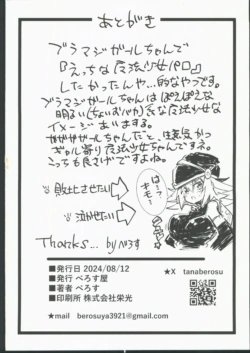 あとがき
ブラマジガールちゃんで
『えっちな魔法少女パロ』
したかったんや…的なやつです。
ブラマジガールちゃんはぽえぽえな
明るい(ちょいおバカ)系な魔法少女な
イメージあいますよ。
ガガガガールちゃんだと、生意気かつ
ギャル寄り魔法少女ちゃんですネ。
こっちも良さげですよね。
敗北させたい
泣かせたい
は…?
キモ…
Thanks... by べろす
■発行日 2024/08/12
■発行 べろす屋
■著者 べろす
■印刷所 株式会社栄光
★X tanaberosu
★mail berosuya3921@gmail.com